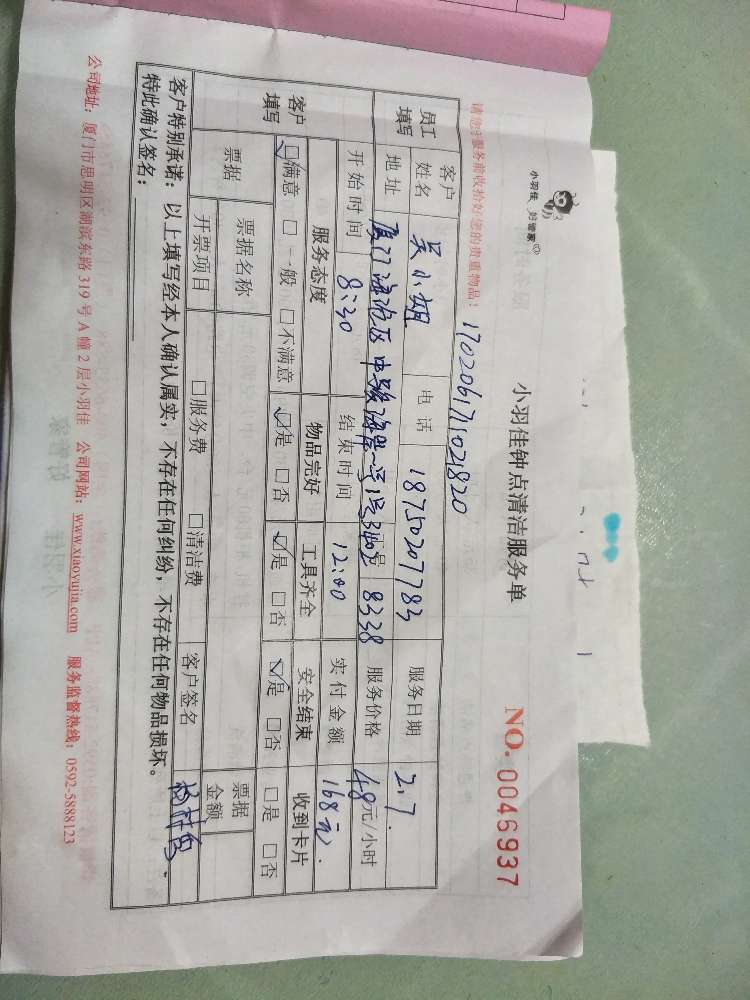 小羽佳 好管家
小羽佳钟点清洁服务单
NO. 0046937
请您在服务前收拾好您的贵重物品!
1702061711021820
员工填写
客户姓名 吴小姐 电话 18750207783 服务日期 2.7.
地址 厦门海沧区中骏海岸一号 8328 服务价格 48元/小时
开始时间 8:30 结束时间 12:00 实付金额 168元.
客户填写
服务态度 物品完好 工具齐全 安全结束 收到卡片
☑满意 □一般 □不满意 ☑是 □否 ☑是 □否 ☑是 □否 □是 □否
票据 票据名称 票据金额
开票项目 □服务费 □清洁费 客户签名
客户特别承诺:以上填写经本人确认属实,不存在任何纠纷,不存在任何物品损坏。
特此确认签名:
公司地址:厦门市思明区湖滨东路 319 号 A 幢 2 层小羽佳 公司网站:www.xiaoyujia.com 服务监督热线:0592-5888123